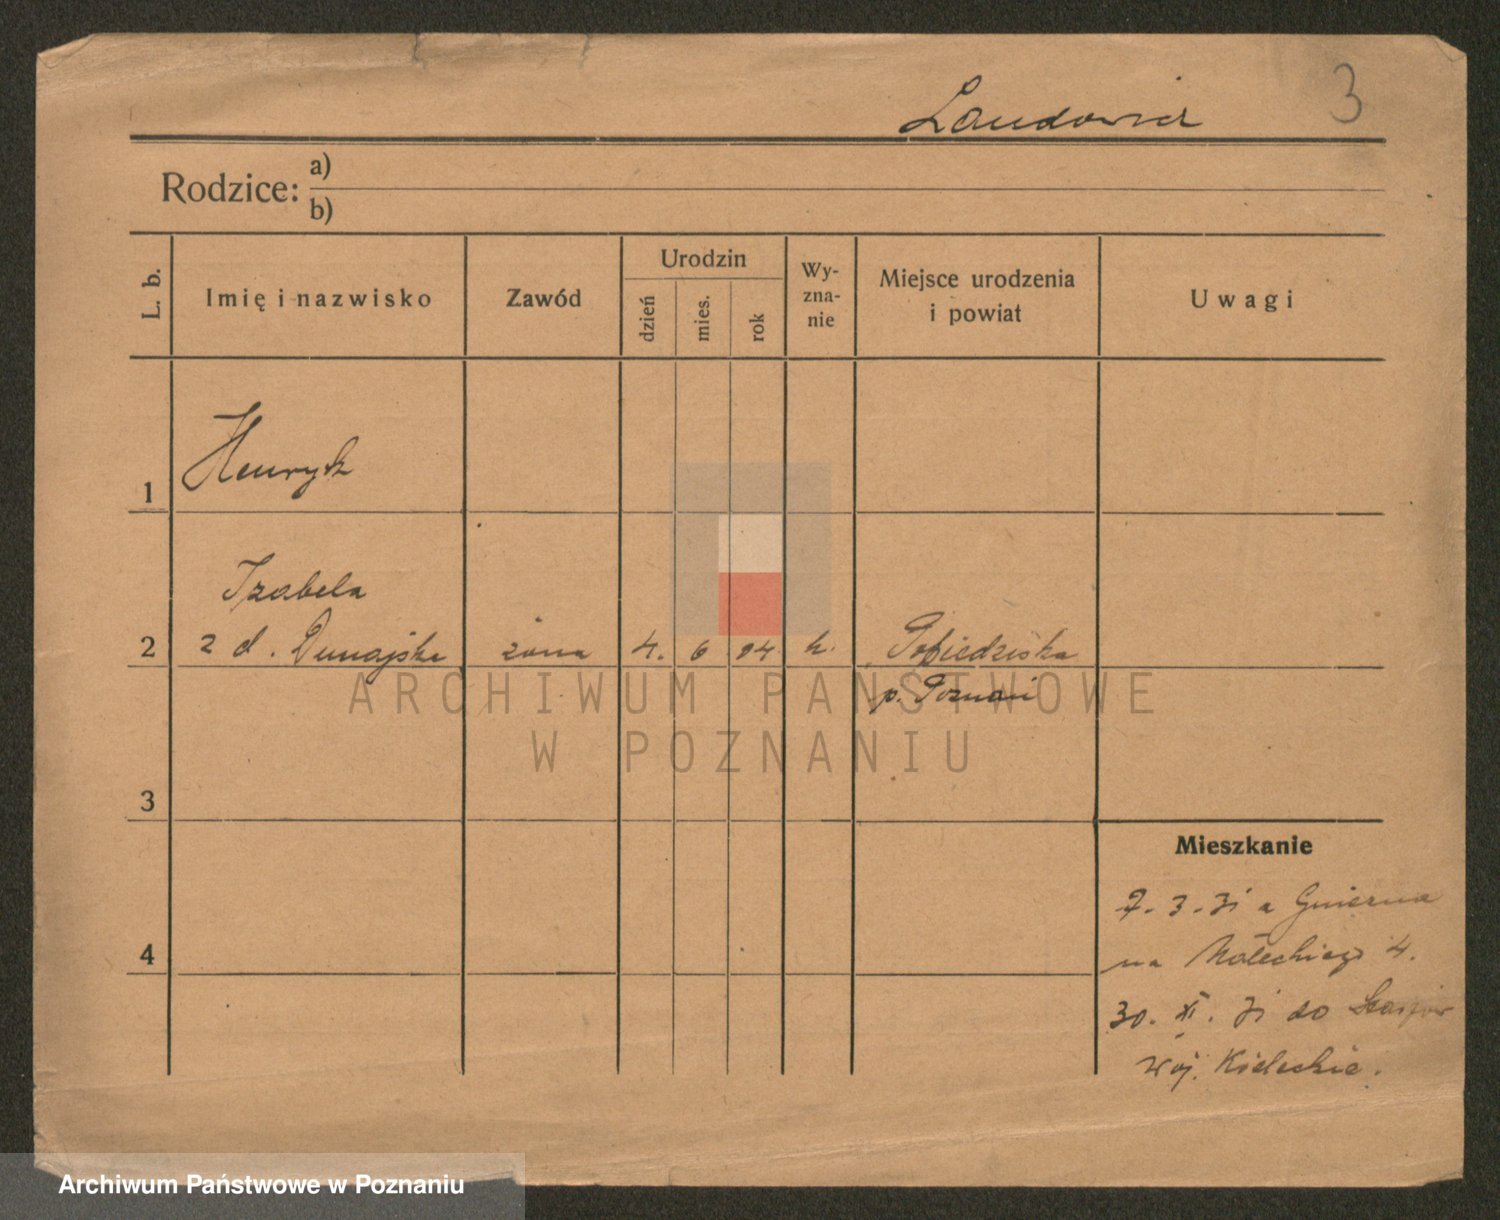 3
Rodzice: a)
b)
L. b.
Imię i nazwisko
Zawód
Urodzin
dzień
mies.
rok
Wy-
zna-
nie
Miejsce urodzenia
i powiat
Uwagi
1
Henryk
Izabela
2 z d. Dunajska żona 4. 6 04 k. Pobiedziska
p. Poznań
ARCHIWUM PAŃSTWOWE
W POZNANIU
3
Mieszkanie
7. 3. 31 z Gniezna
4
na Małeckiego 4.
30. XI. 31 do
woj. Kieleckie.
Archiwum Państwowe w Poznaniu